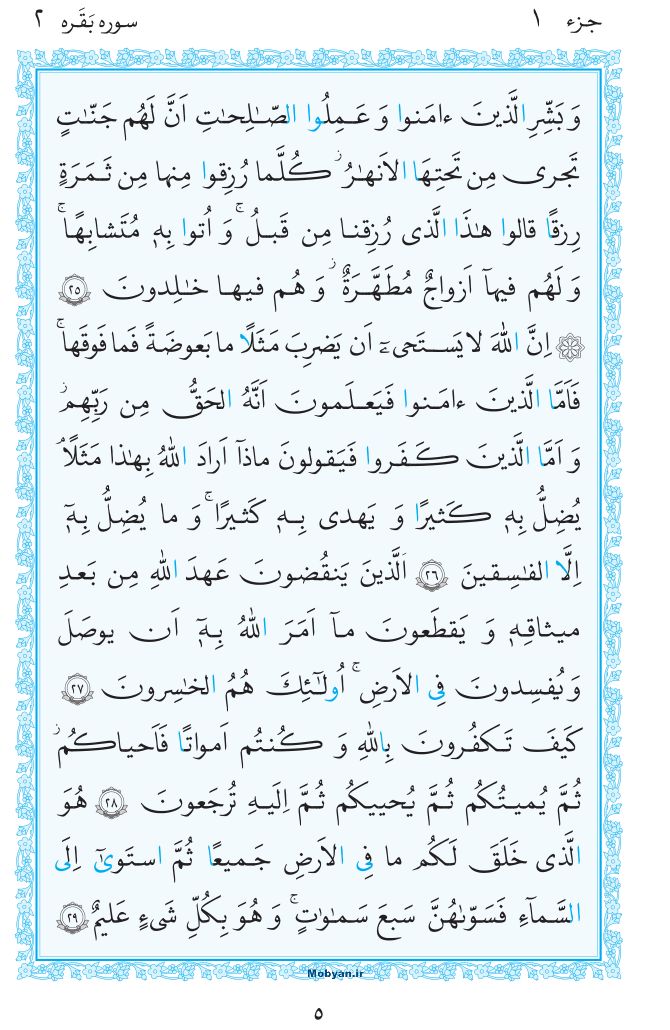 جزء ۱ سوره بَقَره ۲
وَ بَشِّرِ الَّذينَ ءامَنوا وَ عَمِلُوا الصّـٰلِحـٰتِ اَنَّ لَهُم جَنّـٰتٍ
تَجرى مِن تَحتِهَا الاَنهـٰرُ ۖ كُلَّما رُزِقوا مِنها مِن ثَمَرَةٍ
رِزقًا قالوا هـٰذَا الَّذى رُزِقنا مِن قَبلُ ۚ وَ اُتوا بِهٖ مُتَشابِهًا ۚ
وَ لَهُم فيهآ اَزواجٌ مُطَهَّرَةٌ ۖ وَ هُم فيها خـٰلِدونَ ﴿۲۵﴾
۞ اِنَّ اللهَ لا يَستَحىٖٓ اَن يَضرِبَ مَثَلًا ما بَعوضَةً فَما فَوقَها ۚ
فَاَمَّا الَّذينَ ءامَنوا فَيَعلَمونَ اَنَّهُ الحَقُّ مِن رَبِّهِم ۖ
وَ اَمَّا الَّذينَ كَفَروا فَيَقولونَ ماذآ اَرادَ اللهُ بِهـٰذا مَثَلًا ۘ
يُضِلُّ بِهٖ كَثيرًا وَ يَهدى بِهٖ كَثيرًا ۚ وَ ما يُضِلُّ بِهٖٓ
اِلَّا الفـٰسِقينَ ﴿۲۶﴾ اَلَّذينَ يَنقُضونَ عَهدَ اللهِ مِن بَعدِ
ميثاقِهٖ وَ يَقطَعونَ مآ اَمَرَ اللهُ بِهٖٓ اَن يوصَلَ
وَ يُفسِدونَ فِى الاَرضِ ۚ اُولـٰٓئِكَ هُمُ الخـٰسِرونَ ﴿۲۷﴾
كَيفَ تَكفُرونَ بِاللهِ وَ كُنتُم اَمواتًا فَاَحياكُم ۖ
ثُمَّ يُميتُكُم ثُمَّ يُحييكُم ثُمَّ اِلَيهِ تُرجَعونَ ﴿۲۸﴾ هُوَ
الَّذى خَلَقَ لَكُم ما فِى الاَرضِ جَميعًا ثُمَّ استَوىٰٓ اِلَى
السَّمآءِ فَسَوّىٰهُنَّ سَبعَ سَمـٰوٰتٍ ۚ وَ هُوَ بِكُلِّ شَىءٍ عَليمٌ ﴿۲۹﴾
Mobyan.ir
۵